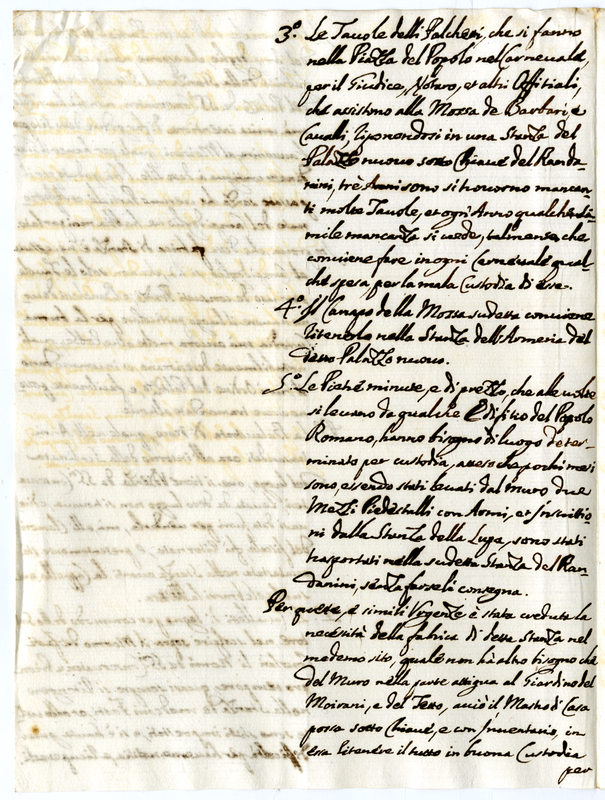 3.° Le Tauole delli Palchetti, che si fanno
nella Piazza del Popolo nel Carneuale,
per il Giudice, Notaro, et altri Offitiali,
che assistono alla Mossa de Barbari, e
Caualli, riponendosi in una Stanza del
Palazzo nuouo sotto Chiaue del Randa-
nini, trè Anni sono si trouorno mancan-
ti molte Tauole, et ogn'Anno qualche si-
mile mancanza si uede, talmente, che
conuiene fare in ogni Carneuale qual-
che spesa, per la mala Custodia di esse.
4.° Il Canapo della Mossa sudetta conuiene
ritenerlo nella Stanza dell'Armeria del
detto Palazzo nuouo.
5.° Le Pietre minute, e di prezzo, che alle uolte
si leuano da qualche Edifitio del Popolo
Romano, hanno bisogno di luogo deter-
minato per custodia, atteso che pochi mesi
sono, essendo stati leuati dal muro due
Mezzi Piedestalli con Armi, et Inscrittio-
ni dalla Stanza della Lupa, sono stati
trasportati nella sudetta Stanza del Ran-
danini, senza farseli consegna.
Per queste, e simili Vrgenze è stata creduta la
necessità della fabrica di detta Stanza nel
medemo sito, quale non hà altro bisogno che
del Muro nella parte attigua al Giardino del
Moirani, e del Tetto, acciò il Mastro di Casa
possa sotto Chiaue, e con Inuentario, in
essa ritenere il tutto in buona Custodia
per